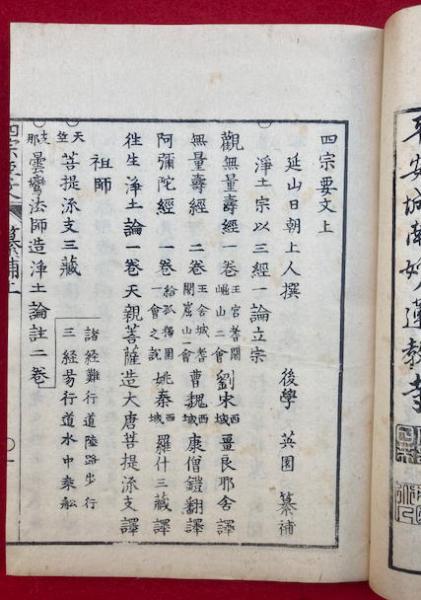 平安城南妙蓮教寺
四宗要文上
延山日朝上人撰　後學　英園　纂補
淨土宗以三經一論立宗
觀無量壽經一卷　王宮耆闍崛山二會　劉宋西域畺良耶舍譯
無量壽經　二卷　王舍城耆闍崛山一會　曹魏西域康僧鎧翻譯
阿彌陀經　一卷　給孤獨園一會之説　姚秦西域羅什三藏譯
徃生淨土論一卷天親菩薩造大唐菩提流支譯
祖師
天竺菩提流支三藏
支那曇鸞法師造淨土論註二卷
諸経難行道陸路步行
三経易行道水中乗舩